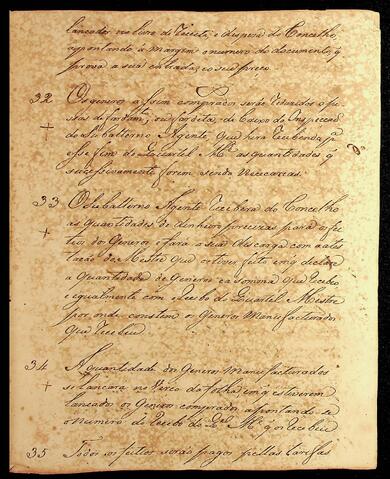 lancados no livro de Receita, e despeza do Concelho
apontando á margem o numero do documento, q̃
prova a sua entrada, e o seu preço.
32 Os generos assim comprados serão reduzidos a
+ de fardam.to debaixo da Inspecção
do Subalterno Agente que hirá recebendo p.a
esse fim do Quartel M.e as quantidades q̃
sucessivamente forem sendo necessarias.
33 O Subalterno Agente receberá do Concelho
+ as quantidades de dinheiro precizas para o
dos Generos, e fará a sua descarga com a
do Mestre que os tiver feito em q̃ declare
a quantidade de generos e a somma que recebeo
e igualmente com recibo do Quartel Mestre
por onde constem os generos Manufacturados
que recebeu.
34 A quantidade dos Generos Manufacturados
+ se lançará no verso da folha em q̃ estiverem
lançados os Generos comprados apontando-se
o numero do recibo do Q.el M.e q̃ os recebeu
35 Todos os feitios serão pagos pellas tarifas